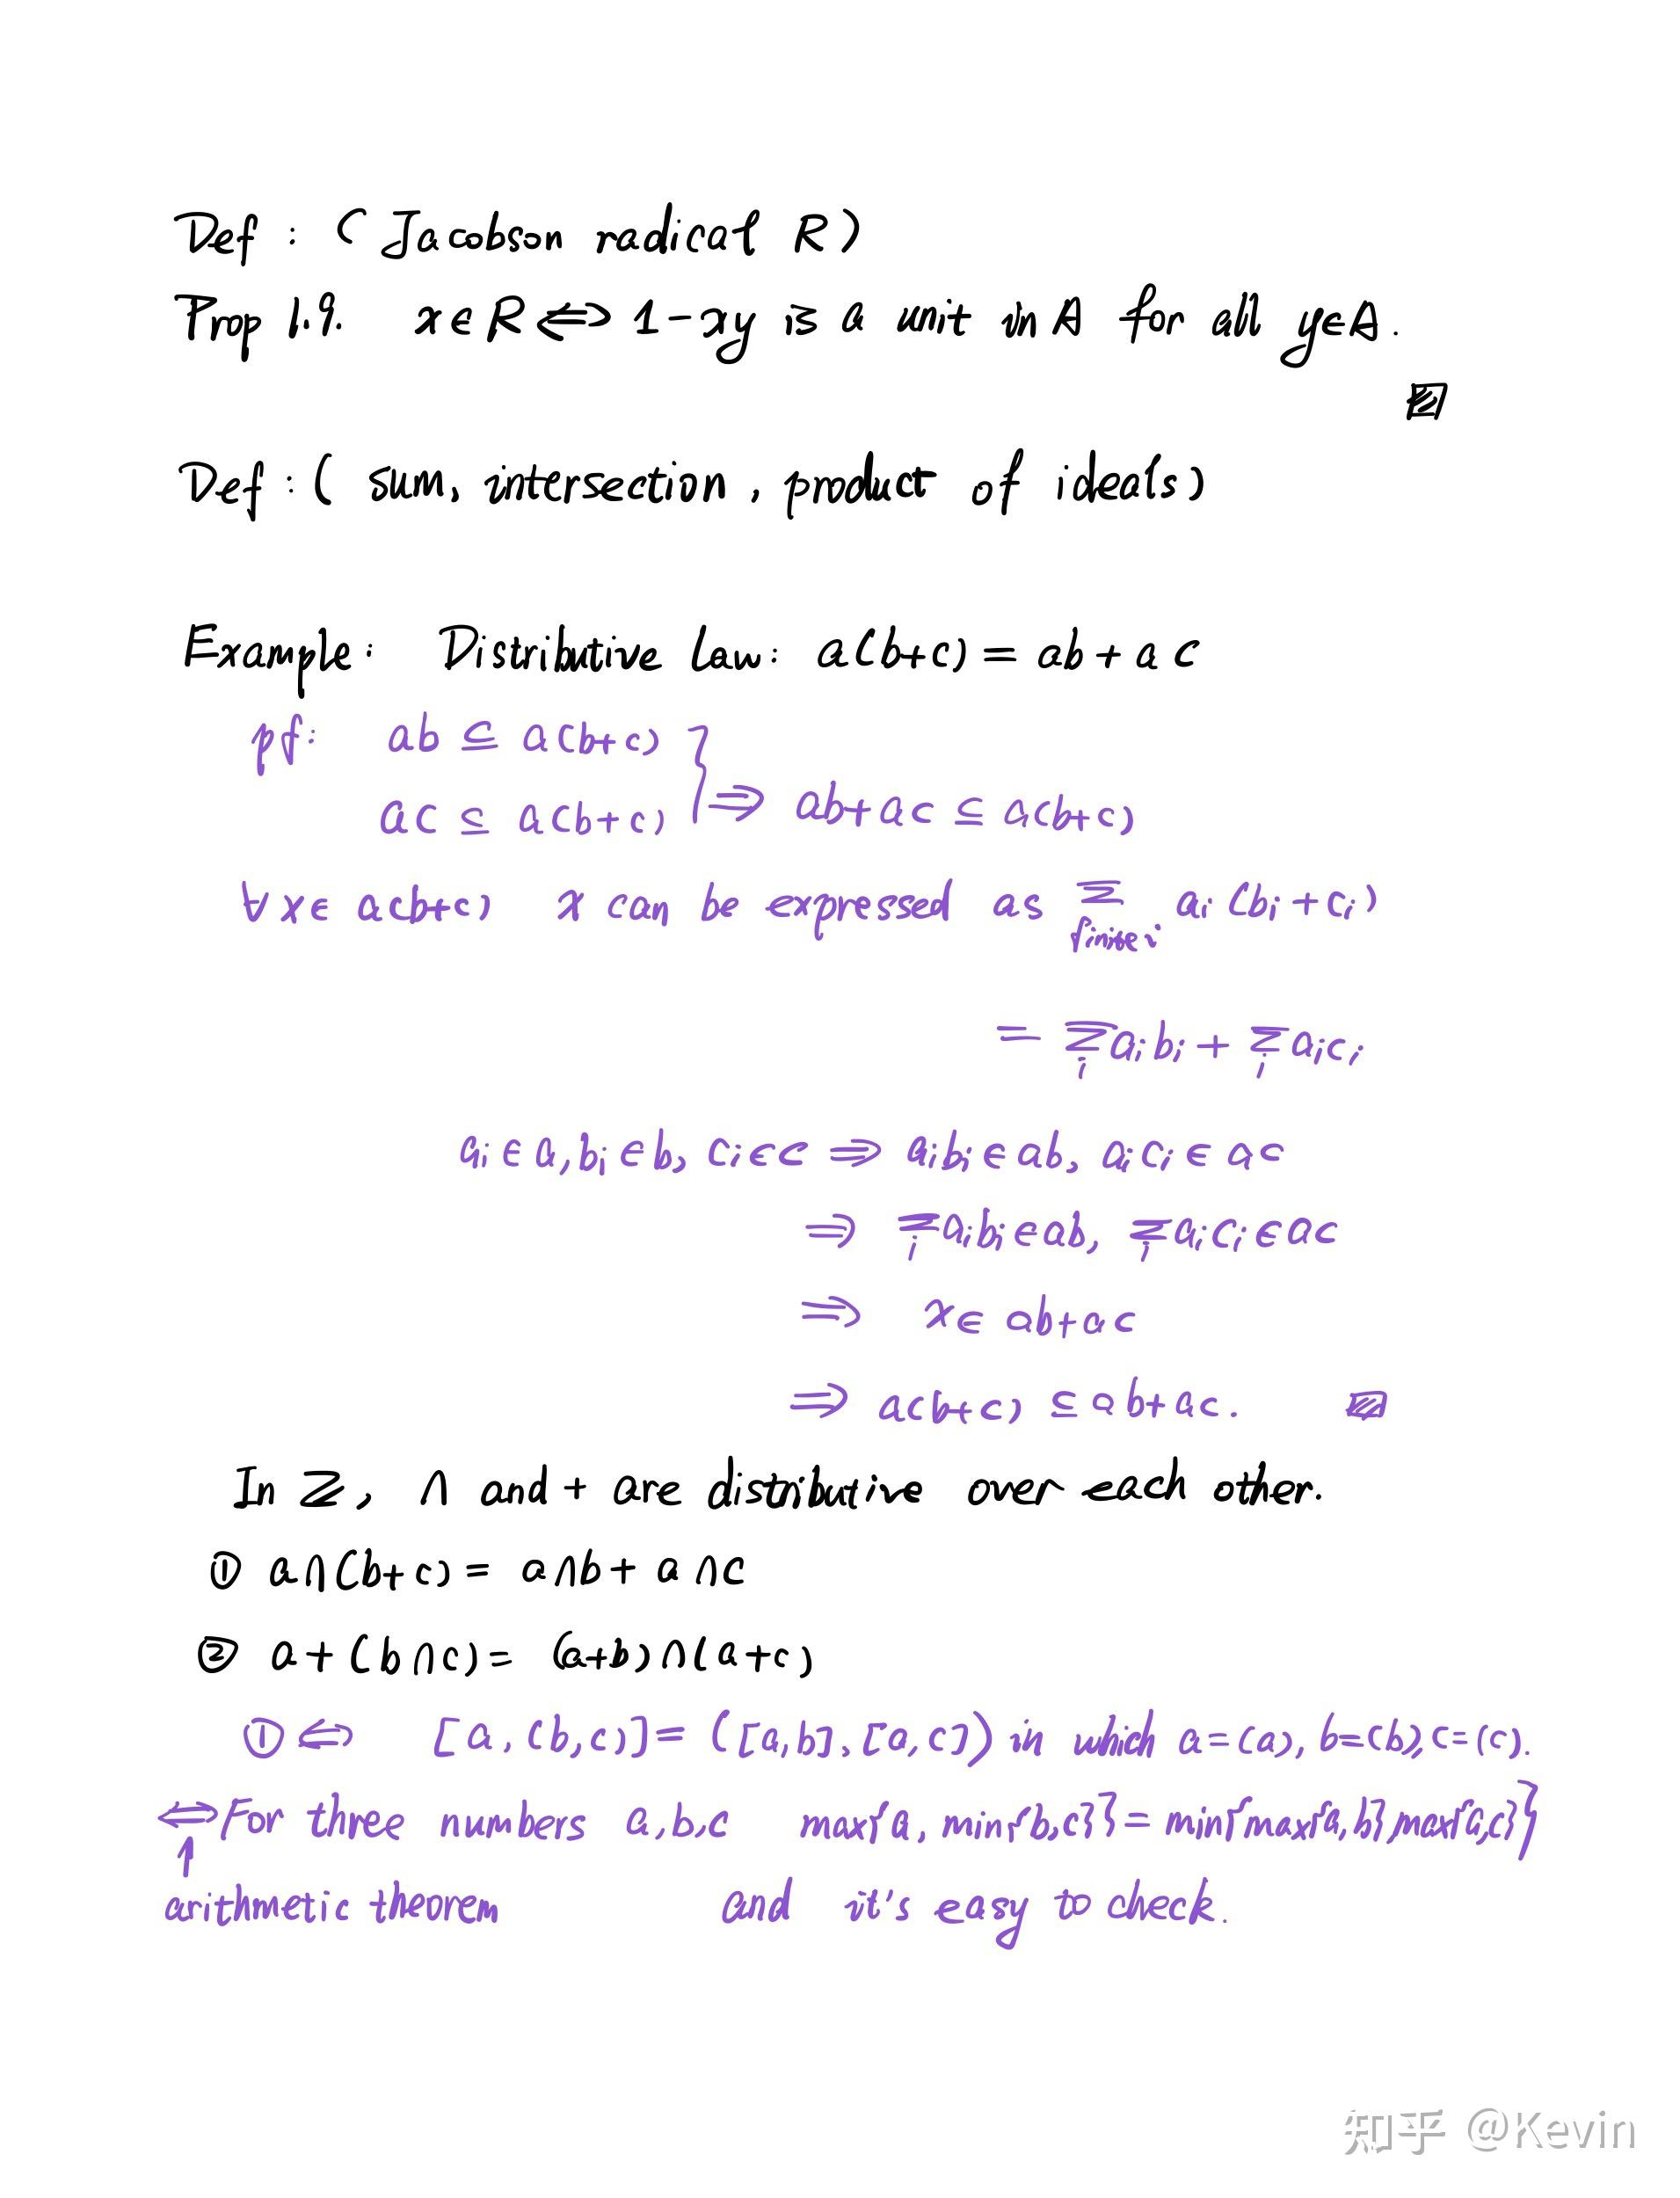 Def : ( Jacobson radical R )
Prop 1.9. x∈R ⟺ 1-xy is a unit in A for all y∈A.
Def : ( sum, intersection, product of ideals )
Example: Distributive law: a(b+c) = ab + ac
pf: ab ⊆ a(b+c)
ac ⊆ a(b+c) } ⟹ ab+ac ⊆ a(b+c)
∀x∈ a(b+c) x can be expressed as ∑_{finite i} a_i (b_i + c_i)
= ∑_i a_i b_i + ∑_i a_i c_i
a_i ∈ a, b_i ∈ b, c_i ∈ c ⟹ a_i b_i ∈ ab, a_i c_i ∈ ac
⟹ ∑_i a_i b_i ∈ ab, ∑_i a_i c_i ∈ ac
⟹ x∈ ab+ac
⟹ a(b+c) ⊆ ab+ac.
In Z, ∩ and + are distributive over each other.
① a∩(b+c) = a∩b + a∩c
② a+(b∩c) = (a+b)∩(a+c)
①⟺ [a,(b,c)] = ([a,b],[a,c]) in which a=(a), b=(b), c=(c).
⟺ For three numbers a,b,c max{a, min{b,c}} = min{max{a,b},max{a,c}}
↑
arithmetic theorem and it's easy to check.
知乎 @Kevin